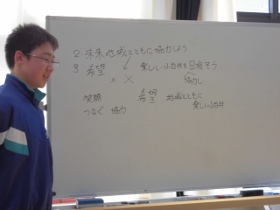 2. 未来 地域とともに協力しよう
3 希望 楽しい小白井を目指そう
協力し
笑顔 希望 地域とともに
つなぐ 協力 楽しい小白井